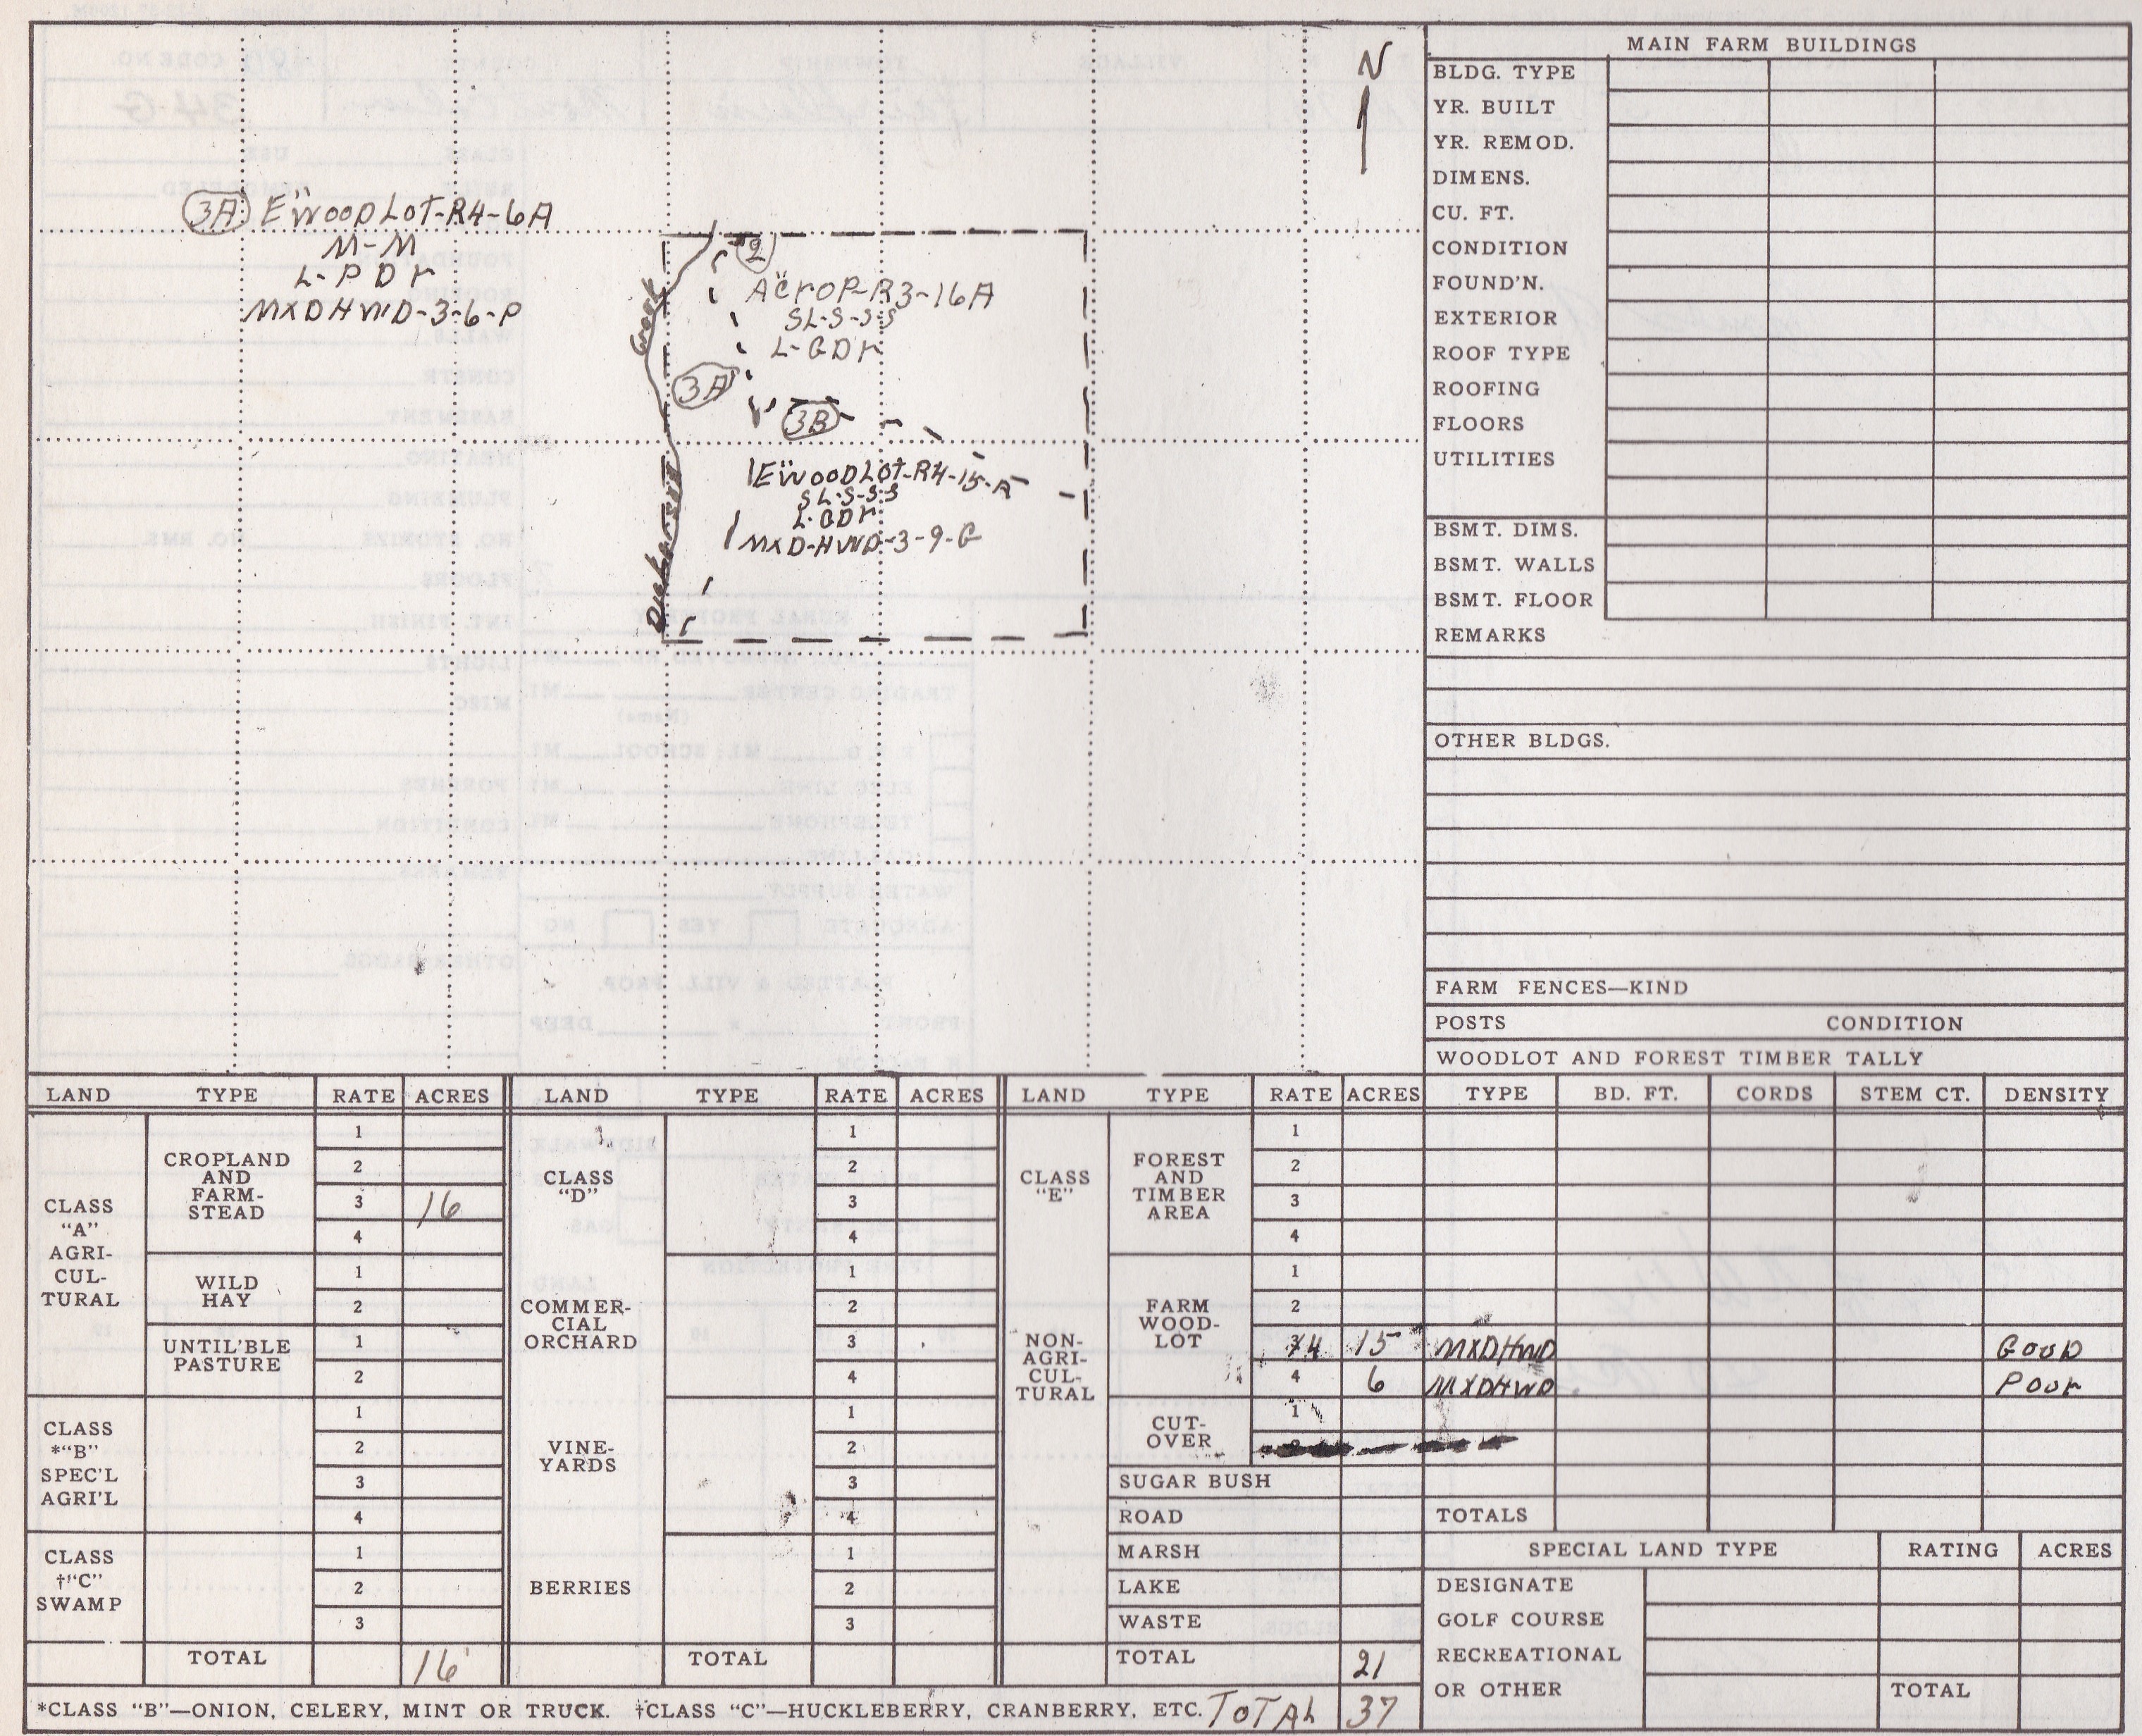 N
3A E"WOODLOT-R4-6A
M-M
L-PDr
MXDHWD-3-6-P
2
A"CrOP-R3-16A
SL-S-S-S
L-GDr
3A
3B
E"WOODLOT-R4-15-A
SL-S-S-S
L-GDr
MXD-HWD-3-9-G
Creek
MAIN FARM BUILDINGS
BLDG. TYPE
YR. BUILT
YR. REMOD.
DIMENS.
CU. FT.
CONDITION
FOUND'N.
EXTERIOR
ROOF TYPE
ROOFING
FLOORS
UTILITIES
BSMT. DIMS.
BSMT. WALLS
BSMT. FLOOR
REMARKS
OTHER BLDGS.
FARM FENCES—KIND
POSTS CONDITION
WOODLOT AND FOREST TIMBER TALLY
LAND TYPE RATE ACRES LAND TYPE RATE ACRES LAND TYPE RATE ACRES TYPE BD. FT. CORDS STEM CT. DENSITY
CLASS
"A"
AGRI-
CUL-
TURAL
CROPLAND
AND
FARM-
STEAD
1
2
3 16
4
WILD
HAY
1
2
UNTIL'BLE
PASTURE
1
2
CLASS
*"B"
SPEC'L
AGRI'L
1
2
3
4
CLASS
†"C"
SWAMP
1
2
3
TOTAL 16
CLASS
"D"
1
2
3
4
COMMER-
CIAL
ORCHARD
1
2
3
4
VINE-
YARDS
1
2
3
4
BERRIES
1
2
3
TOTAL
CLASS
"E"
NON-
AGRI-
CUL-
TURAL
FOREST
AND
TIMBER
AREA
1
2
3
4
FARM
WOOD-
LOT
1
2
4 15 MXDHWD GOOD
4 6 MXDHWD Poor
CUT-
OVER
1
SUGAR BUSH
ROAD
MARSH
LAKE
WASTE
TOTAL 21
TOTALS
SPECIAL LAND TYPE RATING ACRES
DESIGNATE
GOLF COURSE
RECREATIONAL
OR OTHER TOTAL
*CLASS "B"—ONION, CELERY, MINT OR TRUCK. †CLASS "C"—HUCKLEBERRY, CRANBERRY, ETC. TOTAL 37